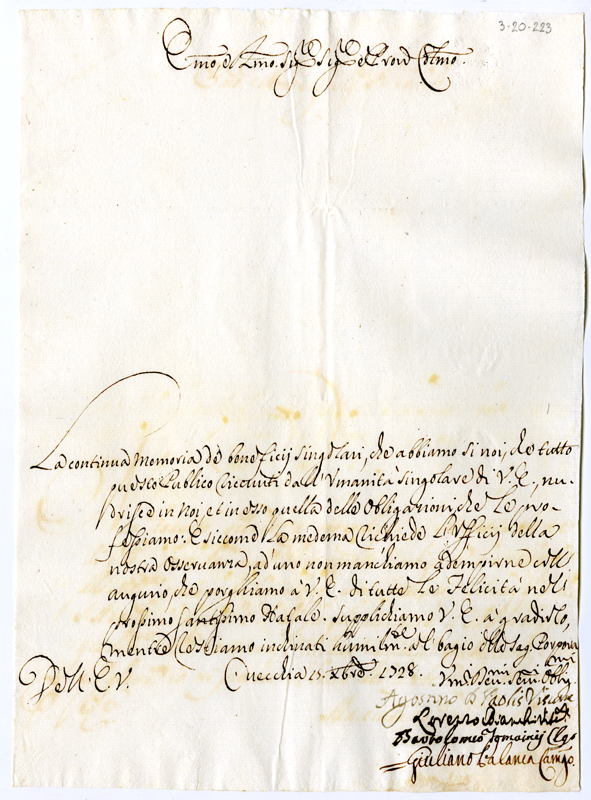 3-20-223
Emo, e Rmo. Sigre Sigre e Proñ Colmo.
La continua Memoria de beneficij singolari, che abbiamo si noi, che tutto
questo Publico ricevuti dall' Vmanità singolare di V. E., nu-
drisce in noi, et in esso quella delle obligationi, che le pro-
fessiamo: E siccome la medema richiede l'Vfficij della
nostra osservanza, ad' uno non manchiamo adempirne coll'
augurio, che porghiamo à V. E. di tutte le Felicità nell
prossimo santissimo Natale. supplichiamo V. E. à gradirlo,
mentre restiamo inclinati humilmte al bagio della Sag. Porpora
Dell' E. V. Vmi Devmi Servi Oblig
15. Xbre 1728.
Agostino Vis
Lorenzo
Bartolomeo
Giuliano Balanca Camgo.